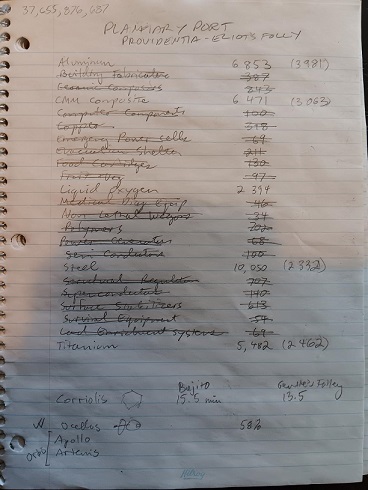 37,655,876,637
PLANETARY PORT
PROVIDENTIA - ELIOTS FOLLY
Aluminum 6,853 (3981)
Building Fabricators 387
Ceramic Composites 843
CMM composite 6 471 (3,063)
Computer Components 100
Copper 318
Emergency Power cells 64
Evacuation Shelter 211
Food Cartridges 130
Fruit + veg 97
Liquid oxygen 2 394
Medical Diag Equip 46
Non Lethal Weapons 34
Polymers 202
Power Generator 68
Semi Conductors 100
Steel 10,050 (2332)
Structural Regulator 707
Superconductor 140
Surface Stabilizers 613
Survival Equipment 54
Land Enrichment systems 69
Titanium 5,482 (2462)
15.5 min 13.5
Corriolis
Ocellus 58%
Orbis Apollo
Artemis